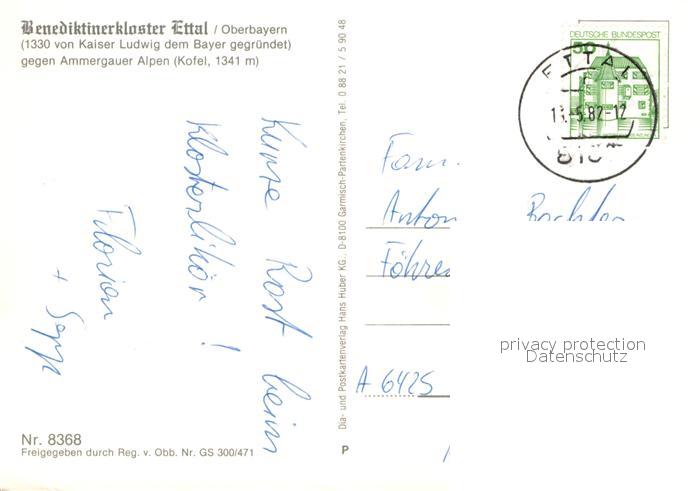 Benediktinerkloster Ettal / Oberbayern
(1330 von Kaiser Ludwig dem Bayer gegründet)
gegen Ammergauer Alpen (Kofel, 1341 m)
Kurze Rast beim
Klosterlikör!
Florian
+ Sepp
Nr. 8368
Freigegeben durch Reg. v. Obb. Nr. GS 300/471
Dia- und Postkartenverlag Hans Huber KG., D-8100 Garmisch-Partenkirchen, Tel. 0 88 21 / 5 90 48
P
DEUTSCHE BUNDESPOST
50
ETTAL
.5.82-12
810
Fam.
Anton
Föhre
A 6425
privacy protection
Datenschutz